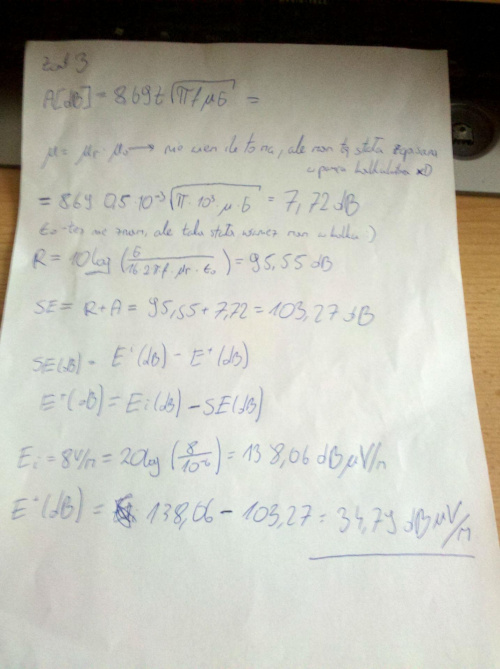 zad 3
A[dB] = 8,69 t √(π f μ б) =
μ = μr · μ0 → nie wiem ile to na, ale mam tą stałą zapisaną
w pamięci kalkulatora xD
= 8,69 0,5·10⁻³ √(π·10³·μ·б) = 7,72 dB
ε0 - też nie znam, ale taka stała również mam w kalku )
R = 10log (б / 16 2πf · μr · ε0) = 95,55 dB
SE = R + A = 95,55 + 7,72 = 103,27 dB
SE(dB) = E⁺(dB) - E⁺(dB)
E⁺(dB) = Ei(dB) - SE(dB)
Ei = 8V/m = 20log (8 / 10⁻⁶) = 138,06 dBμV/m
E⁺(dB) = 138,06 - 103,27 = 34,79 dBμV/m